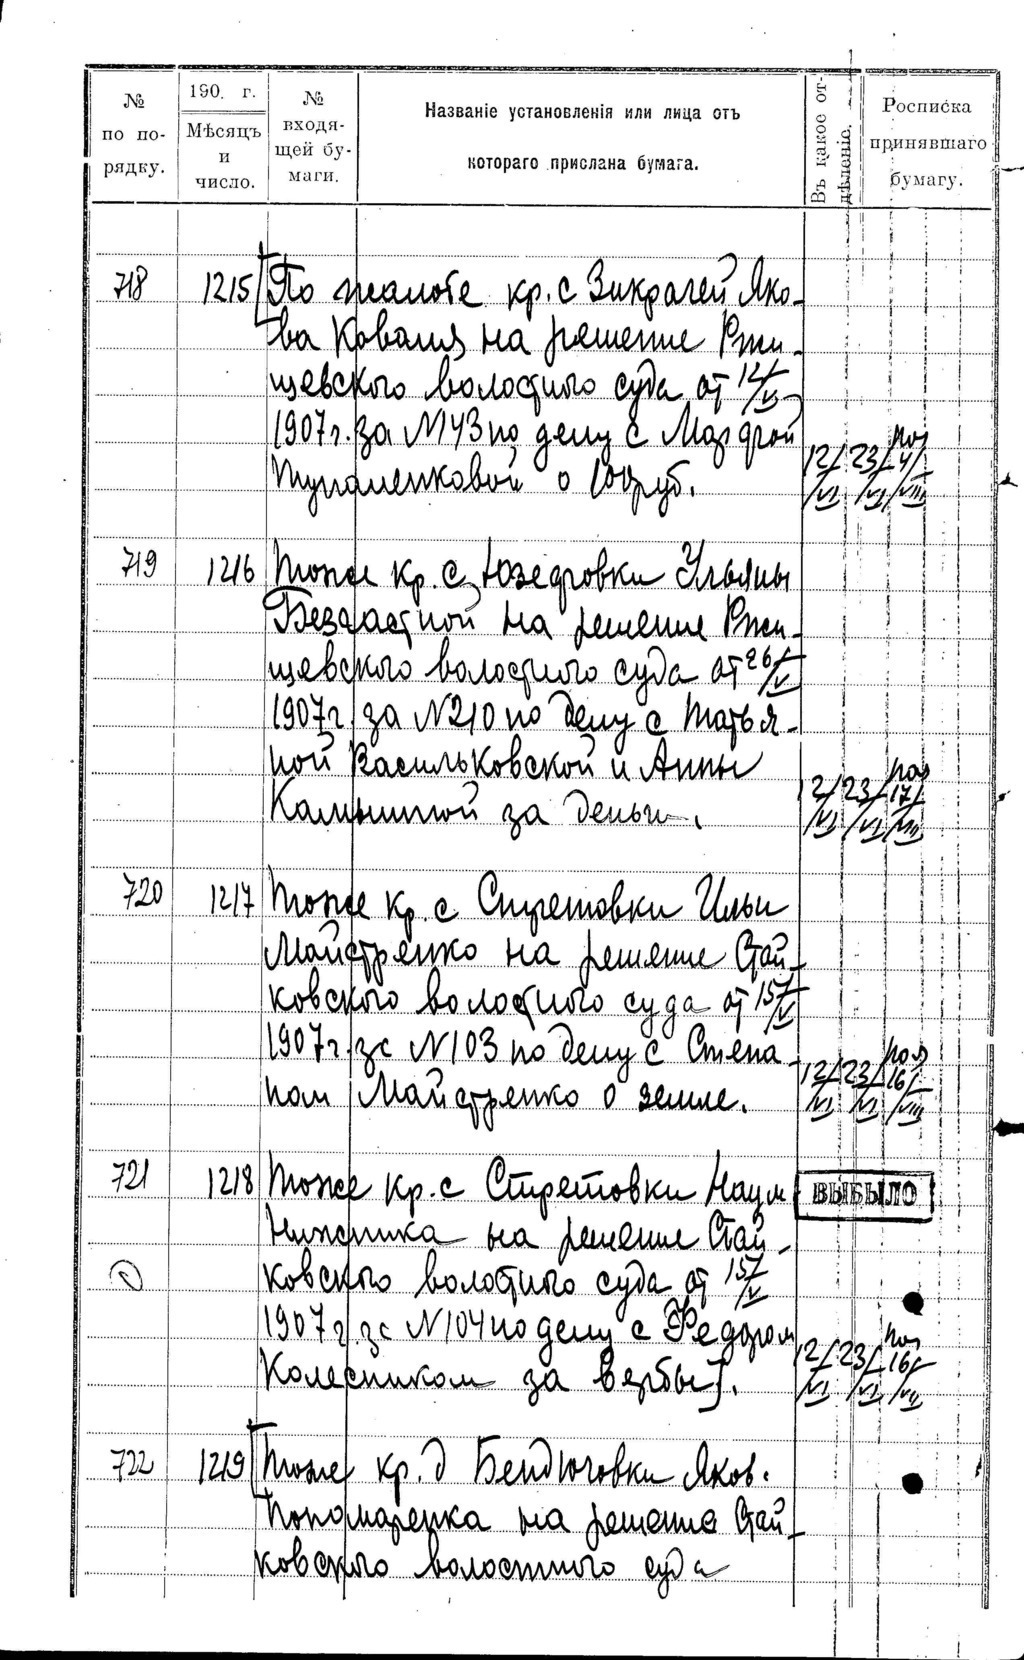 № по порядку.
190. г.
Мѣсяцъ и число.
№ входящей бумаги.
Названіе установленія или лица отъ
котораго прислана бумага.
Въ какое отдѣленіе.
Росписка принявшаго бумагу.
718 1215 По жалобе кр. с Зикрачей Яко-
ва Коваля на решение Ржи-
щевского волостного суда от 12/VI
1907 г. за №143 по делу с
о 100 руб.
12/VI 23/VI 4/VIII
719 1216 Тоже кр. с. Юзефовки Ульяны
Безчастной на решение Ржи-
щевского волостного суда от 26/V
1907 г. за №210 по делу с Татья-
ной Васильковской и Анны
за деньги.
12/VI 23/VI 17/VII
720 1217 Тоже кр. с Стретовки Ильи
Майстренко на решение Стай-
ковского волостного суда от 15/V
1907 г. за №103 по делу с Степа-
ном Майстренко о земле.
12/VI 23/VI 16/VIII
721 1218 Тоже кр. с Стретовки Наум
Нижника на решение Стай-
ВЫБЫЛО
ковского волостного суда от 15/V
1907 г. за №104 по делу с Федором
Колесником за вербы.
12/VI 23/VI 16/VII
722 1219 Тоже кр. д Бендюговки Яков.
Пономаренка на решение Стай-
ковского волостного суда